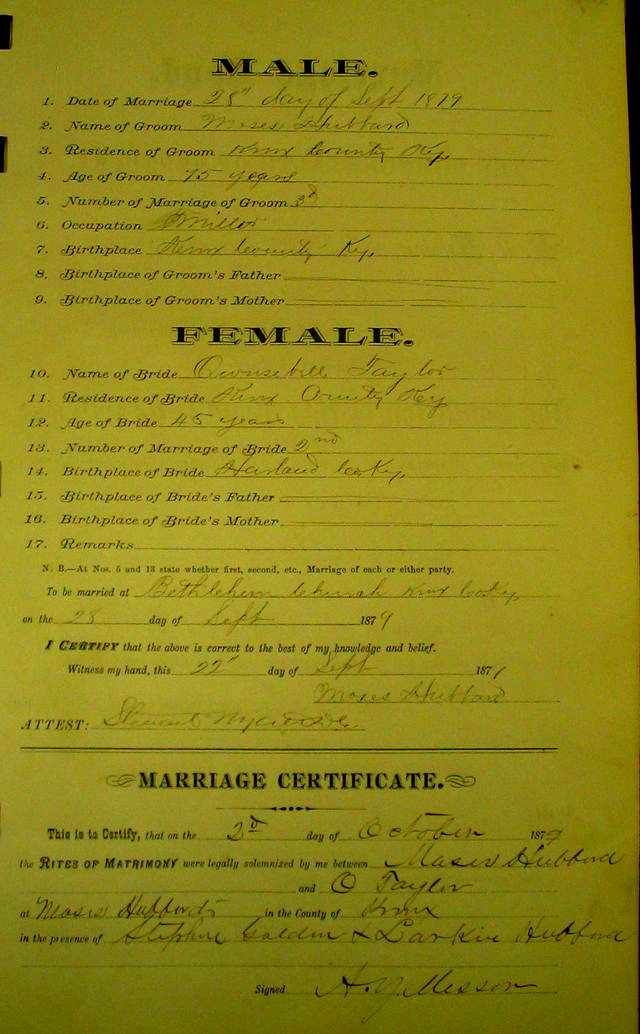 MALE.
1. Date of Marriage 28" day of Sept 1879
2. Name of Groom Moses Hibbard
3. Residence of Groom Knox County Ky,
4. Age of Groom 75 years
5. Number of Marriage of Groom 3d
6. Occupation Miller
7. Birthplace Knox County Ky,
8. Birthplace of Groom's Father
9. Birthplace of Groom's Mother
FEMALE.
10. Name of Bride Taylor
11. Residence of Bride Knox County Ky
12. Age of Bride 45 years
13. Number of Marriage of Bride 2nd
14. Birthplace of Bride Harland Co Ky,
15. Birthplace of Bride's Father
16. Birthplace of Bride's Mother
17. Remarks
N. B.—At Nos. 5 and 13 state whether first, second, etc., Marriage of each or either party.
To be married at Bethlehem Church Knox Co Ky,
on the 28 day of Sept 1879
I CERTIFY that the above is correct to the best of my knowledge and belief.
Witness my hand, this 22" day of Sept 187
Moses Hibbard
ATTEST:
MARRIAGE CERTIFICATE.
This is to Certify, that on the 2d day of October 1879
the RITES OF MATRIMONY were legally solemnized by me between Moses Hubbord
and O Taylor
at Moses Hubbords in the County of Knox
in the presence of Golden & Larkin Hubbord
Signed